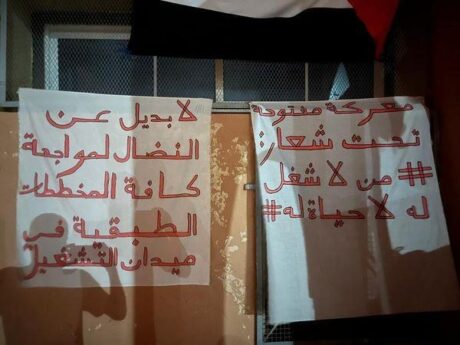 معركة مفتوحة
تحت شعار:
# من لا شغل
له لا حياة له #
لا بديل عن
النضال لمواجهة
كافة المخططات
الطبقية في
ميدان التشغيل